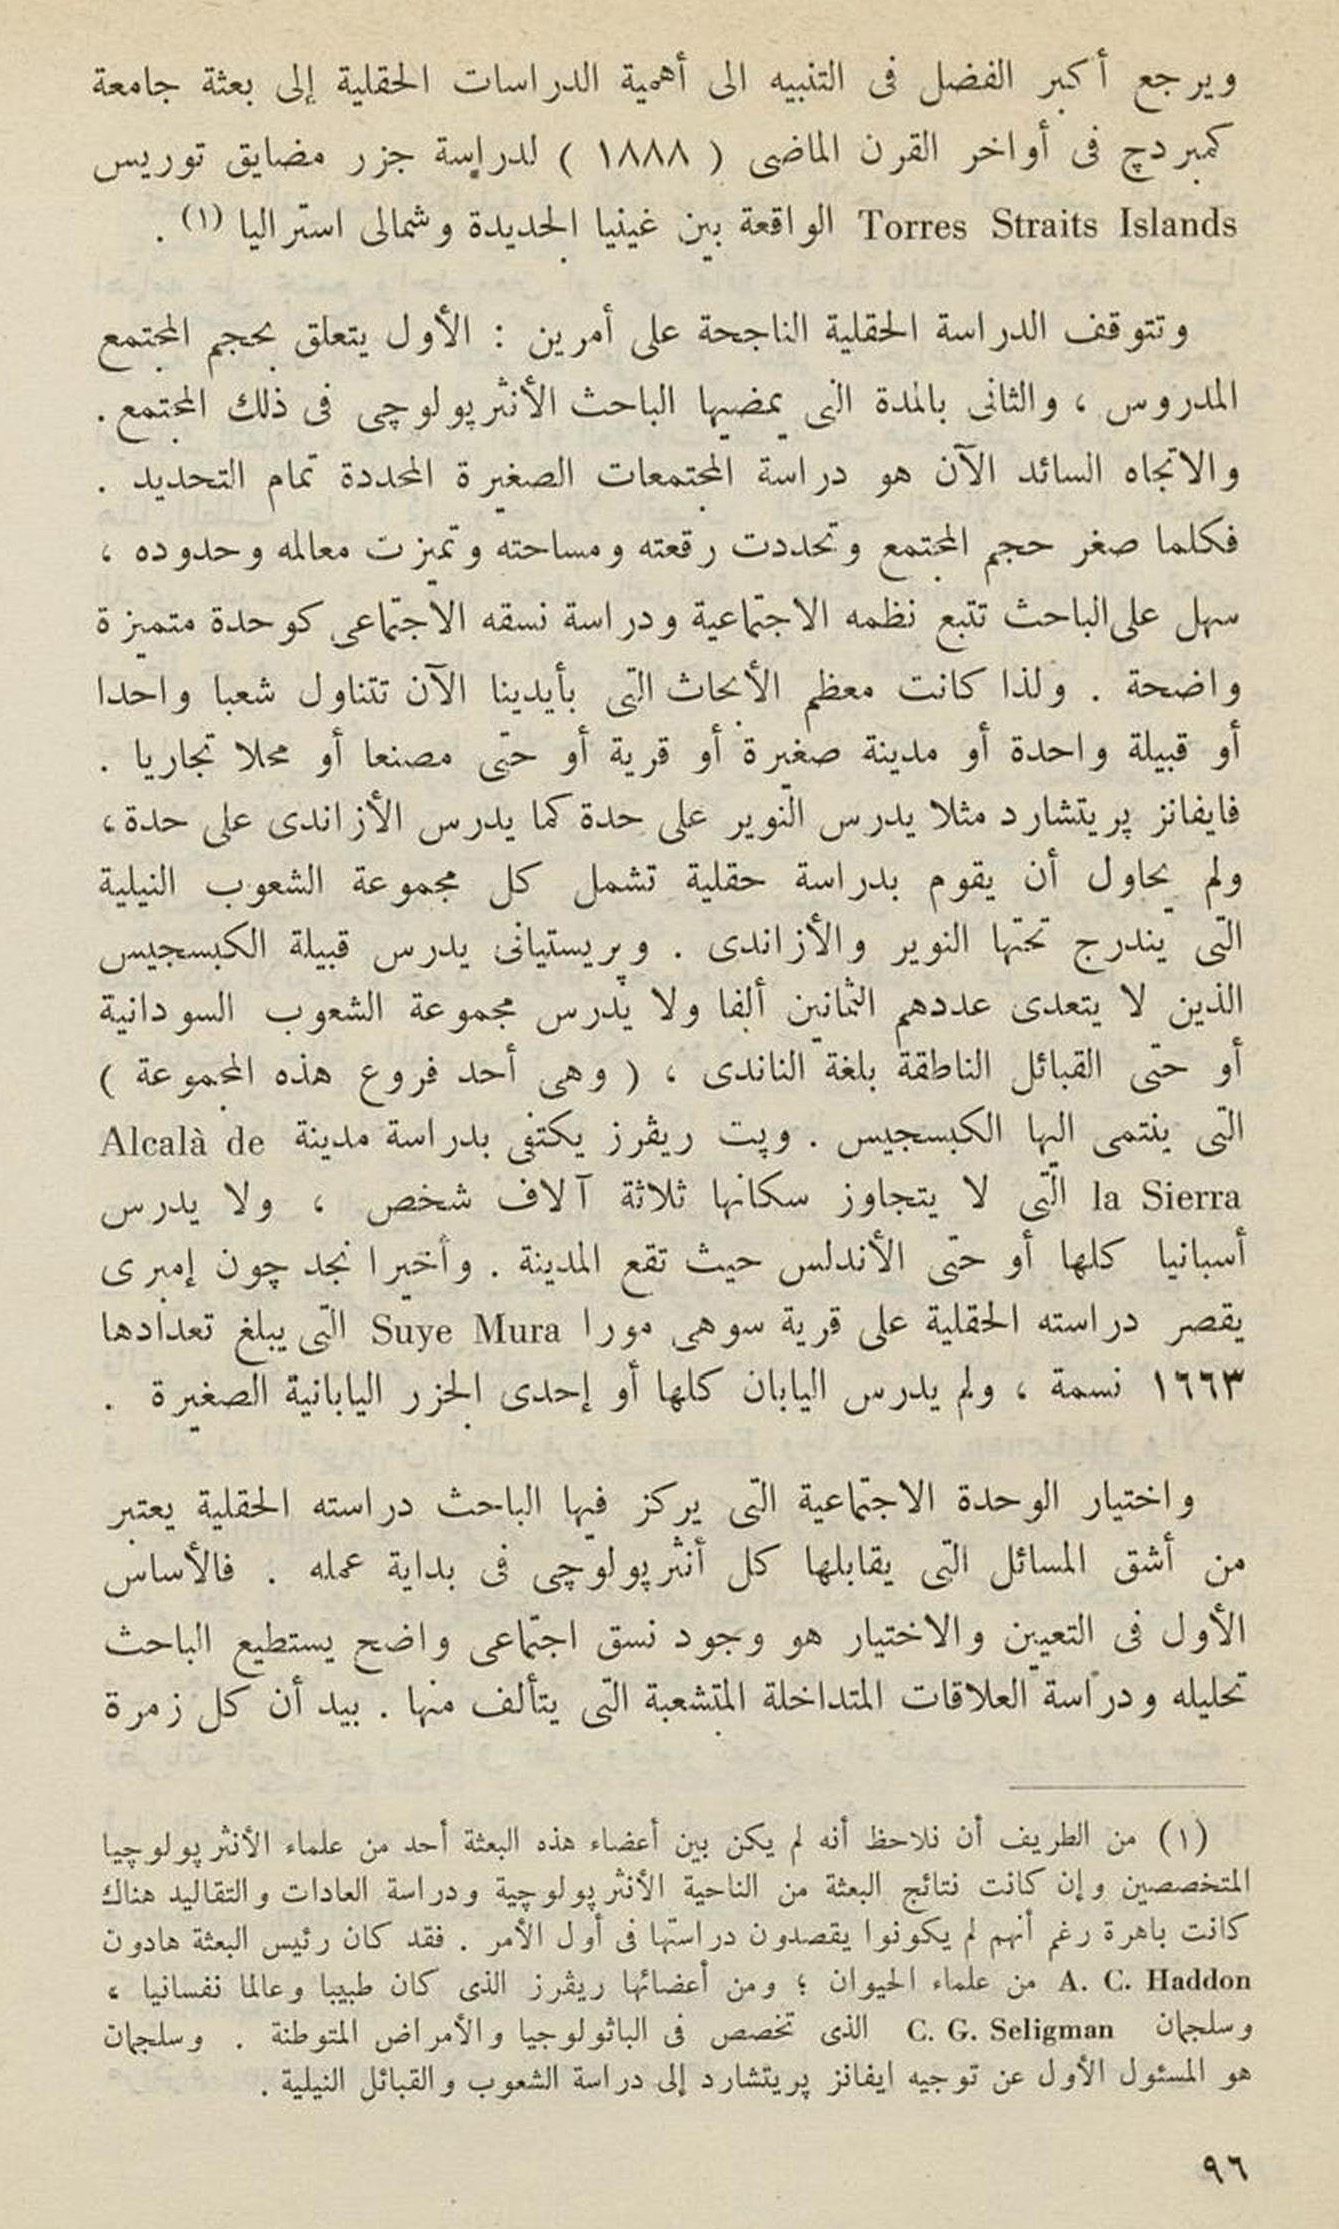 ويرجع أكبر الفضل فى التنبيه الى أهمية الدراسات الحقلية إلى بعثة جامعة
كمبردچ فى أواخر القرن الماضى ( ١٨٨٨ ) لدراسة جزر مضايق توريس
Torres Straits Islands الواقعة بين غينيا الجديدة وشمالى استراليا (١) .
وتتوقف الدراسة الحقلية الناجحة على أمرين : الأول يتعلق بحجم المجتمع
المدروس ، والثانى بالمدة التى يمضيها الباحث الأنثرپولوچى فى ذلك المجتمع .
والاتجاه السائد الآن هو دراسة المجتمعات الصغيرة المحددة تمام التحديد .
فكلما صغر حجم المجتمع وتحددت رقعته ومساحته وتميزت معالمه وحدوده ،
سهل على الباحث تتبع نظمه الاجتماعية ودراسة نسقه الاجتماعى كوحدة متميزة
واضحة . ولذا كانت معظم الأبحاث التى بأيدينا الآن تتناول شعبا واحدا
أو قبيلة واحدة أو مدينة صغيرة أو قرية أو حتى مصنعا أو محلا تجاريا .
فايفانز پريتشارد مثلا يدرس النوير على حدة كما يدرس الأزاندى على حدة ،
ولم يحاول أن يقوم بدراسة حقلية تشمل كل مجموعة الشعوب النيلية
التى يندرج تحتها النوير والأزاندى . وپريستيانى يدرس قبيلة الكبسجيس
الذين لا يتعدى عددهم الثمانين ألفا ولا يدرس مجموعة الشعوب السودانية
أو حتى القبائل الناطقة بلغة الناندى ، ( وهى أحد فروع هذه المجموعة )
التى ينتمى اليها الكبسجيس . وپت ريڤرز يكتفى بدراسة مدينة Alcalà de
la Sierra التى لا يتجاوز سكانها ثلاثة آلاف شخص ، ولا يدرس
أسبانيا كلها أو حتى الأندلس حيث تقع المدينة . وأخيرا نجد چون إمبرى
يقصر دراسته الحقلية على قرية سوهى مورا Suye Mura التى يبلغ تعدادها
١٦٦٣ نسمة ، ولم يدرس اليابان كلها أو إحدى الجزر اليابانية الصغيرة .
واختيار الوحدة الاجتماعية التى يركز فيها الباحث دراسته الحقلية يعتبر
من أشق المسائل التى يقابلها كل أنثرپولوچى فى بداية عمله . فالأساس
الأول فى التعيين والاختيار هو وجود نسق اجتماعى واضح يستطيع الباحث
تحليله ودراسة العلاقات المتداخلة المتشعبة التى يتألف منها . بيد أن كل زمرة
(١) من الطريف أن نلاحظ أنه لم يكن بين أعضاء هذه البعثة أحد من علماء الأنثرپولوچيا
المتخصصين وإن كانت نتائج البعثة من الناحية الأنثرپولوچية ودراسة العادات والتقاليد هناك
كانت باهرة رغم أنهم لم يكونوا يقصدون دراستها فى أول الأمر . فقد كان رئيس البعثة هادون
A. C. Haddon من علماء الحيوان ؛ ومن أعضائها ريڤرز الذى كان طبيبا وعالما نفسانيا ،
وسلجمان C. G. Seligman الذى تخصص فى الباثولوجيا والأمراض المتوطنة . وسلجمان
هو المسئول الأول عن توجيه ايفانز پريتشارد إلى دراسة الشعوب والقبائل النيلية .
٩٦